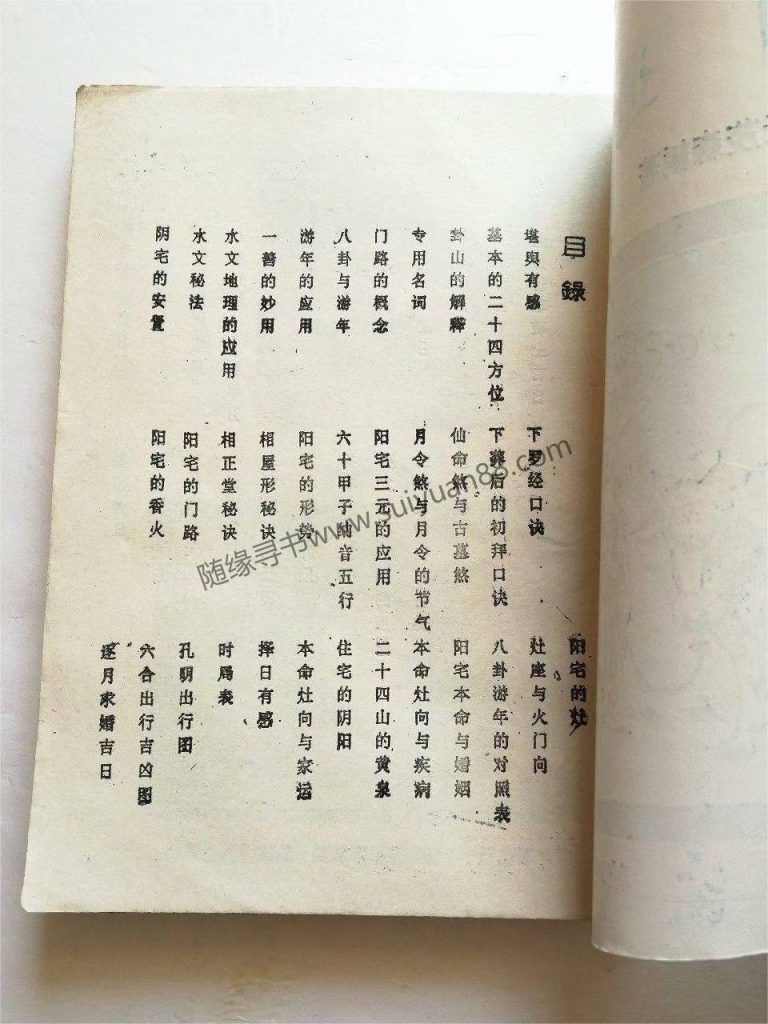 目錄
堪舆有感
基本的二十四方位
卦山的解释
专用名词
门路的概念
八卦与游年
游年的应用
一善的妙用
水文地理的应用
水文秘法
阴宅的安置
下罗经口诀
下葬后的初拜口诀
仙命煞与古墓煞
月令煞与月令的节气
阳宅三元的应用
六十甲子纳音五行
阳宅的形势
相屋形秘诀
相正堂秘诀
阳宅的门路
阳宅的香火
阳宅的灶
灶座与火门向
八卦游年的对照表
阳宅本命与婚姻
本命灶向与疾病
二十四山的黄泉
住宅的阴阳
本命灶向与家运
择日有感
时局表
孔明出行图
六合出行吉凶图
逐月求婚吉日
随缘寻书www.suiyuan88.com